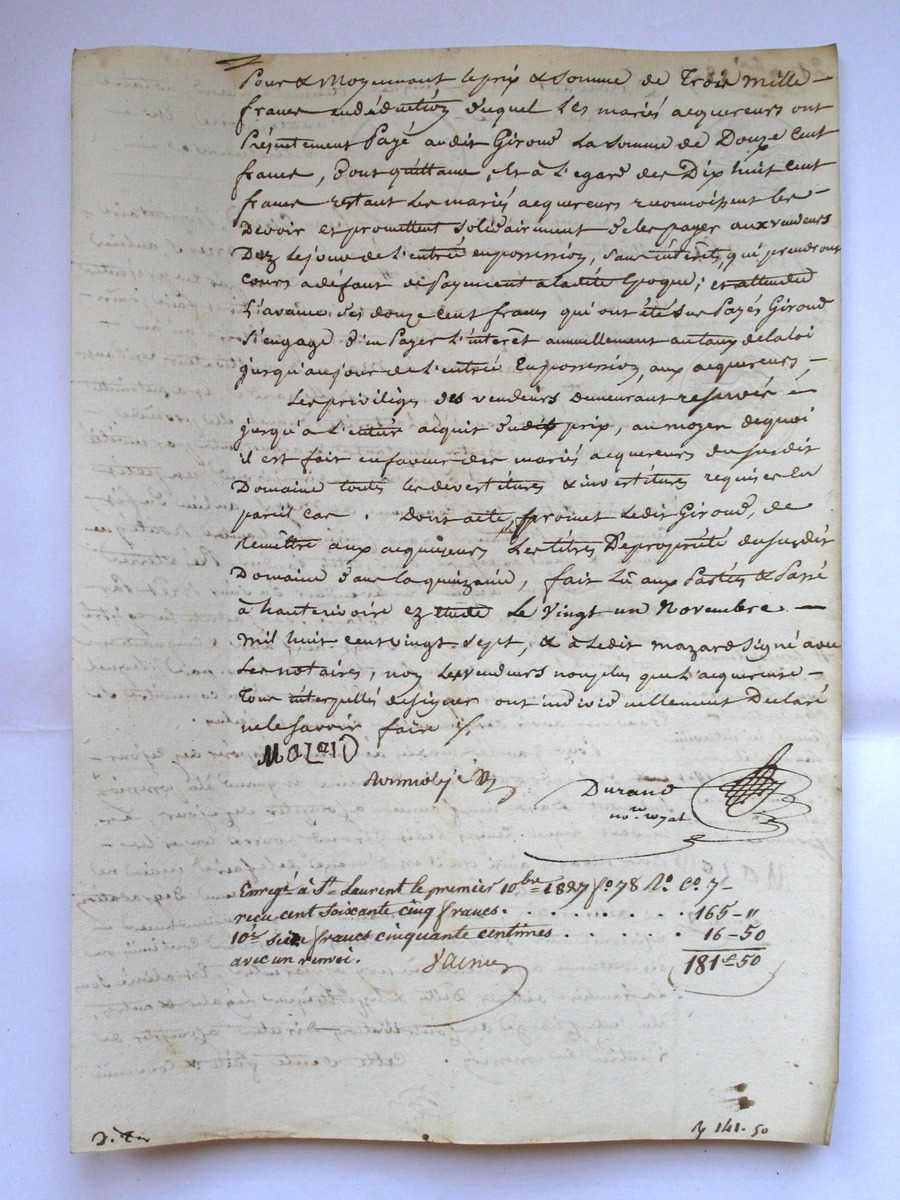 Pour & moyennant le prix & somme de Trois mille
francs en déduction duquel Les mariés acquereurs ont
Présentement Payé audit Giroud La somme de Douze Cent
francs, Dont quittance, Et à L'egard des Dix huit Cent
francs restant Les mariés acquereurs reconnoissent les
Devoir et promettent solidairement de les payer aux vendeurs
Dez Le jour de L'entrée en possession, Sans intérêts, qui prendront
Cours à défaut de Payement à ladite Epoque; et attendu
L'avance des douze Cent francs qui ont été Payés Giroud
S'engage d'en Payer L'interêt annuellement au taux de la loi
jusqu'au jour de L'entrée En possession, aux acquereurs,
Les privilèges des vendeurs demeurant reservés
jusqu'à L'entier acquit dudit prix, au moyen de quoi
il est fait en faveur des mariés acquereurs du susdit
Domaine toutes les devestitures & investitures requises en
pareil cas. Dont acte, promet Ledit Giroud, de
Remettre aux acquereurs Les titres De propriété du susdit
Domaine dans la quinzaine, fait Lû aux Parties & Passé
à hauterivoire ez étude Le Vingt un Novembre
Mil huit cent vingt sept, & à Ledit mazard signé avec
Les notaires, non Les vendeurs non plus que L'acquereuse
Tous interpellés de signer ont individuellement Declaré
ne le savoir faire /.
MaZaRD
Durand
no.re royal
Enregé à St. Laurent le premier 10bre 1827 fo. 78 Ro. Co. 7
reçu cent soixante cinq francs. . . . . . . . 165 - "
10e. seize francs cinquante centimes . . . . . 16 - 50
avec un renvoi.
181f 50
141 . 50